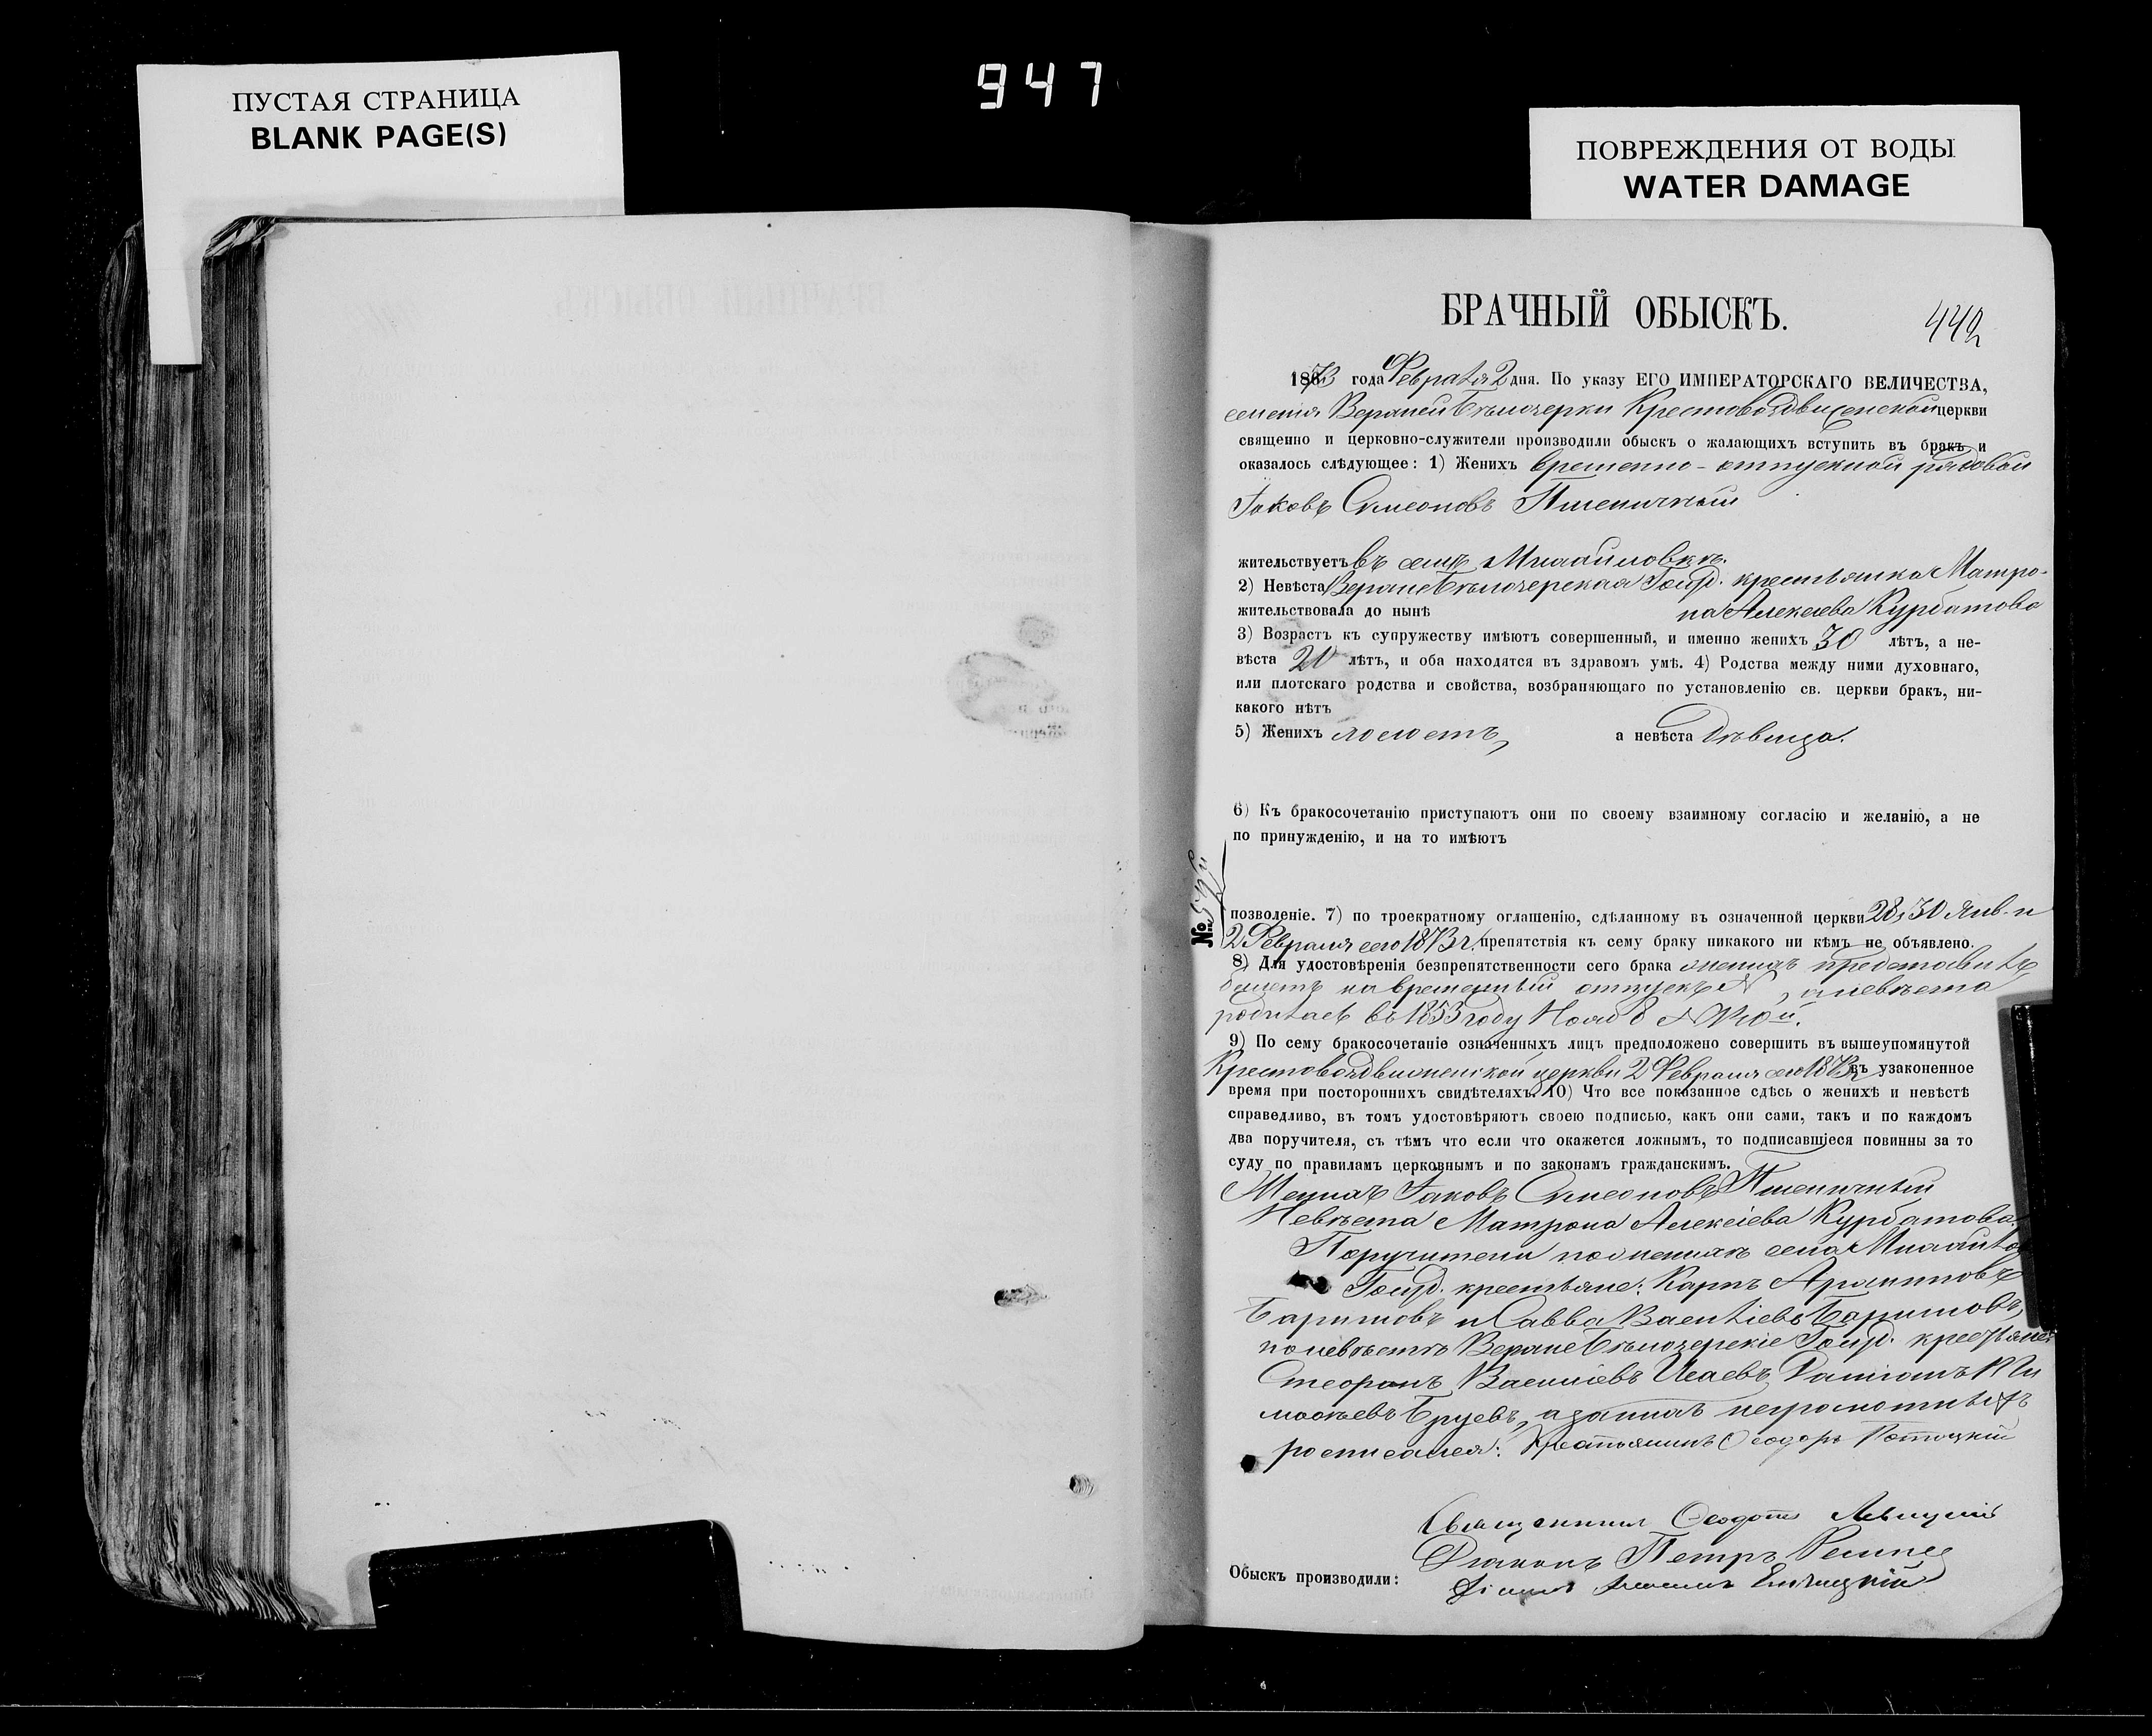 ПУСТАЯ СТРАНИЦА
BLANK PAGE(S)
947
ПОВРЕЖДЕНИЯ ОТ ВОДЫ
WATER DAMAGE
БРАЧНЫЙ ОБЫСКЪ.
442
1873 года Февраля 2 дня. По указу ЕГО ИМПЕРАТОРСКАГО ВЕЛИЧЕСТВА,
селенія Верхней Бѣлозерки Крестовоздвиженской церкви
священно и церковно-служители производили обыскъ о жалающихъ вступить въ бракъ и
оказалось слѣдующее: 1) Женихъ временно-отпускной рядовой
Іаковъ Симеоновъ Пшеничный
жительствуетъ въ селѣ Михайловкѣ.
2) Невѣста Верхне Бѣлозерская Госуд. крестьянка Матро-
жительствовала до нынѣ на Алексѣева Курбатова
3) Возрастъ къ супружеству имѣютъ совершенный, и именно женихъ 30 лѣтъ, а не-
вѣста 20 лѣтъ, и оба находятся въ здравомъ умѣ. 4) Родства между ними духовнаго,
или плотскаго родства и свойства, возбраняющаго по установленію св. церкви бракъ, ни-
какого нѣтъ
5) Женихъ холостъ, а невѣста дѣвица.
6) Къ бракосочетанію приступаютъ они по своему взаимному согласію и желанію, а не
по принужденію, и на то имѣютъ
№
позволеніе. 7) по троекратному оглашенію, сдѣланному въ означенной церкви 28, 30 Янв. и
2 Февраля сего 1873 г. препятствія къ сему браку никакого ни кѣмъ не объявлено.
8) Для удостовѣренія безпрепятственности сего брака женихъ представилъ
билетъ на временный отпускъ №, а невѣста
родилась въ 1853 году Нояб 8 №
9) По сему бракосочетаніе означенныхъ лицъ предположено совершить въ вышеупомянутой
Крестовоздвиженской церкви 2 Февраля сего 1873 г. въ узаконенное
время при постороннихъ свидѣтеляхъ. 10) Что все показанное сдѣсь о женихѣ и невѣстѣ
справедливо, въ томъ удостовѣряютъ своею подписью, какъ они сами, такъ и по каждомъ
два поручителя, съ тѣмъ что если что окажется ложнымъ, то подписавшіеся повинны за то
суду по правиламъ церковнымъ и по законамъ гражданскимъ.
Женихъ Іаковъ Симеоновъ Пшеничный
Невѣста Матрона Алексіева Курбатова.
Поручители по женихѣ села Михайло
Госуд. крестьяне: Карпъ
Баришовъ и Савва Василіевъ Баришовъ,
по невѣстѣ Верхне Бѣлозерскіе Госуд. крестьяне
Стефанъ Василіевъ Исаевъ, Даміанъ
а за нихъ неграмотныхъ
росписался: Крестьянинъ Феодоръ
Священникъ Феодотъ Левицкій
Діаконъ Петръ
Обыскъ производили: